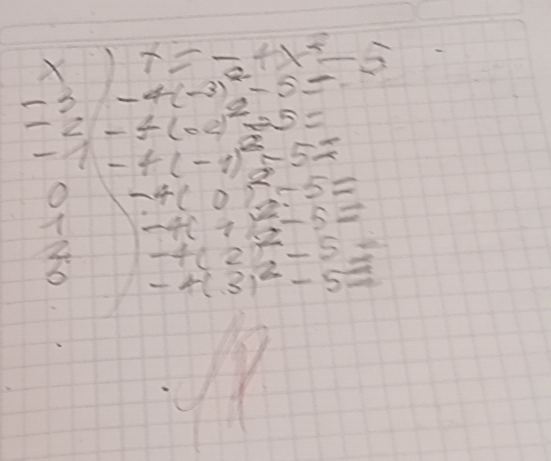 x ) Y = -4x² - 5
-3 -4(-3)² - 5 =
-2 -4(-2)² - 5 =
-1 -4(-1)² - 5 =
0 -4( 0 )² - 5 =
1 -4( 1 )² - 5 =
2 -4( 2 )² - 5 =
3 -4( 3 )² - 5 =